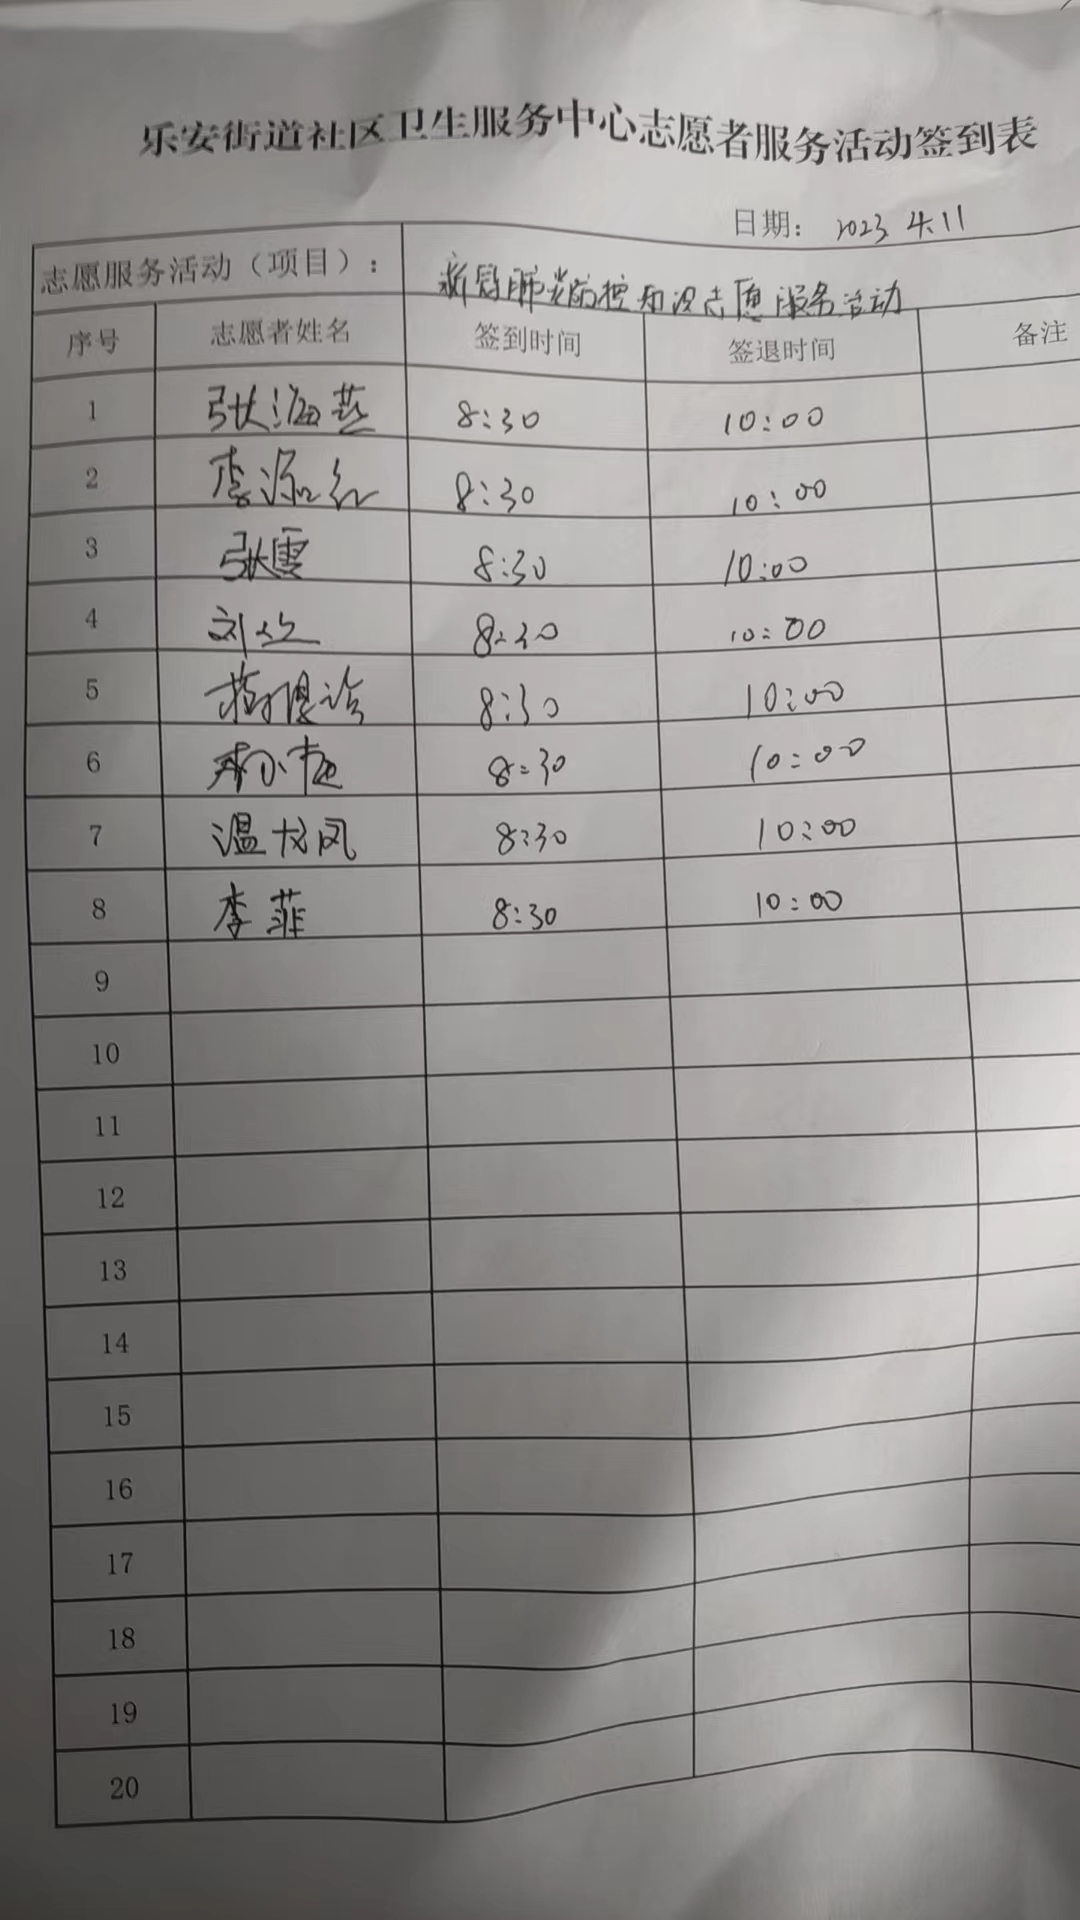 乐安街道社区卫生服务中心志愿者服务活动签到表
日期： 2023 4.11
志愿服务活动（项目）： 新冠肺炎防控知识志愿服务活动
序号 志愿者姓名 签到时间 签退时间 备注
1 张海燕 8:30 10:00
2 李源红 8:30 10:00
3 张霞 8:30 10:00
4 刘 8:30 10:00
5 8:30 10:00
6 8:30 10:00
7 温龙凤 8:30 10:00
8 李菲 8:30 10:00
9
10
11
12
13
14
15
16
17
18
19
20